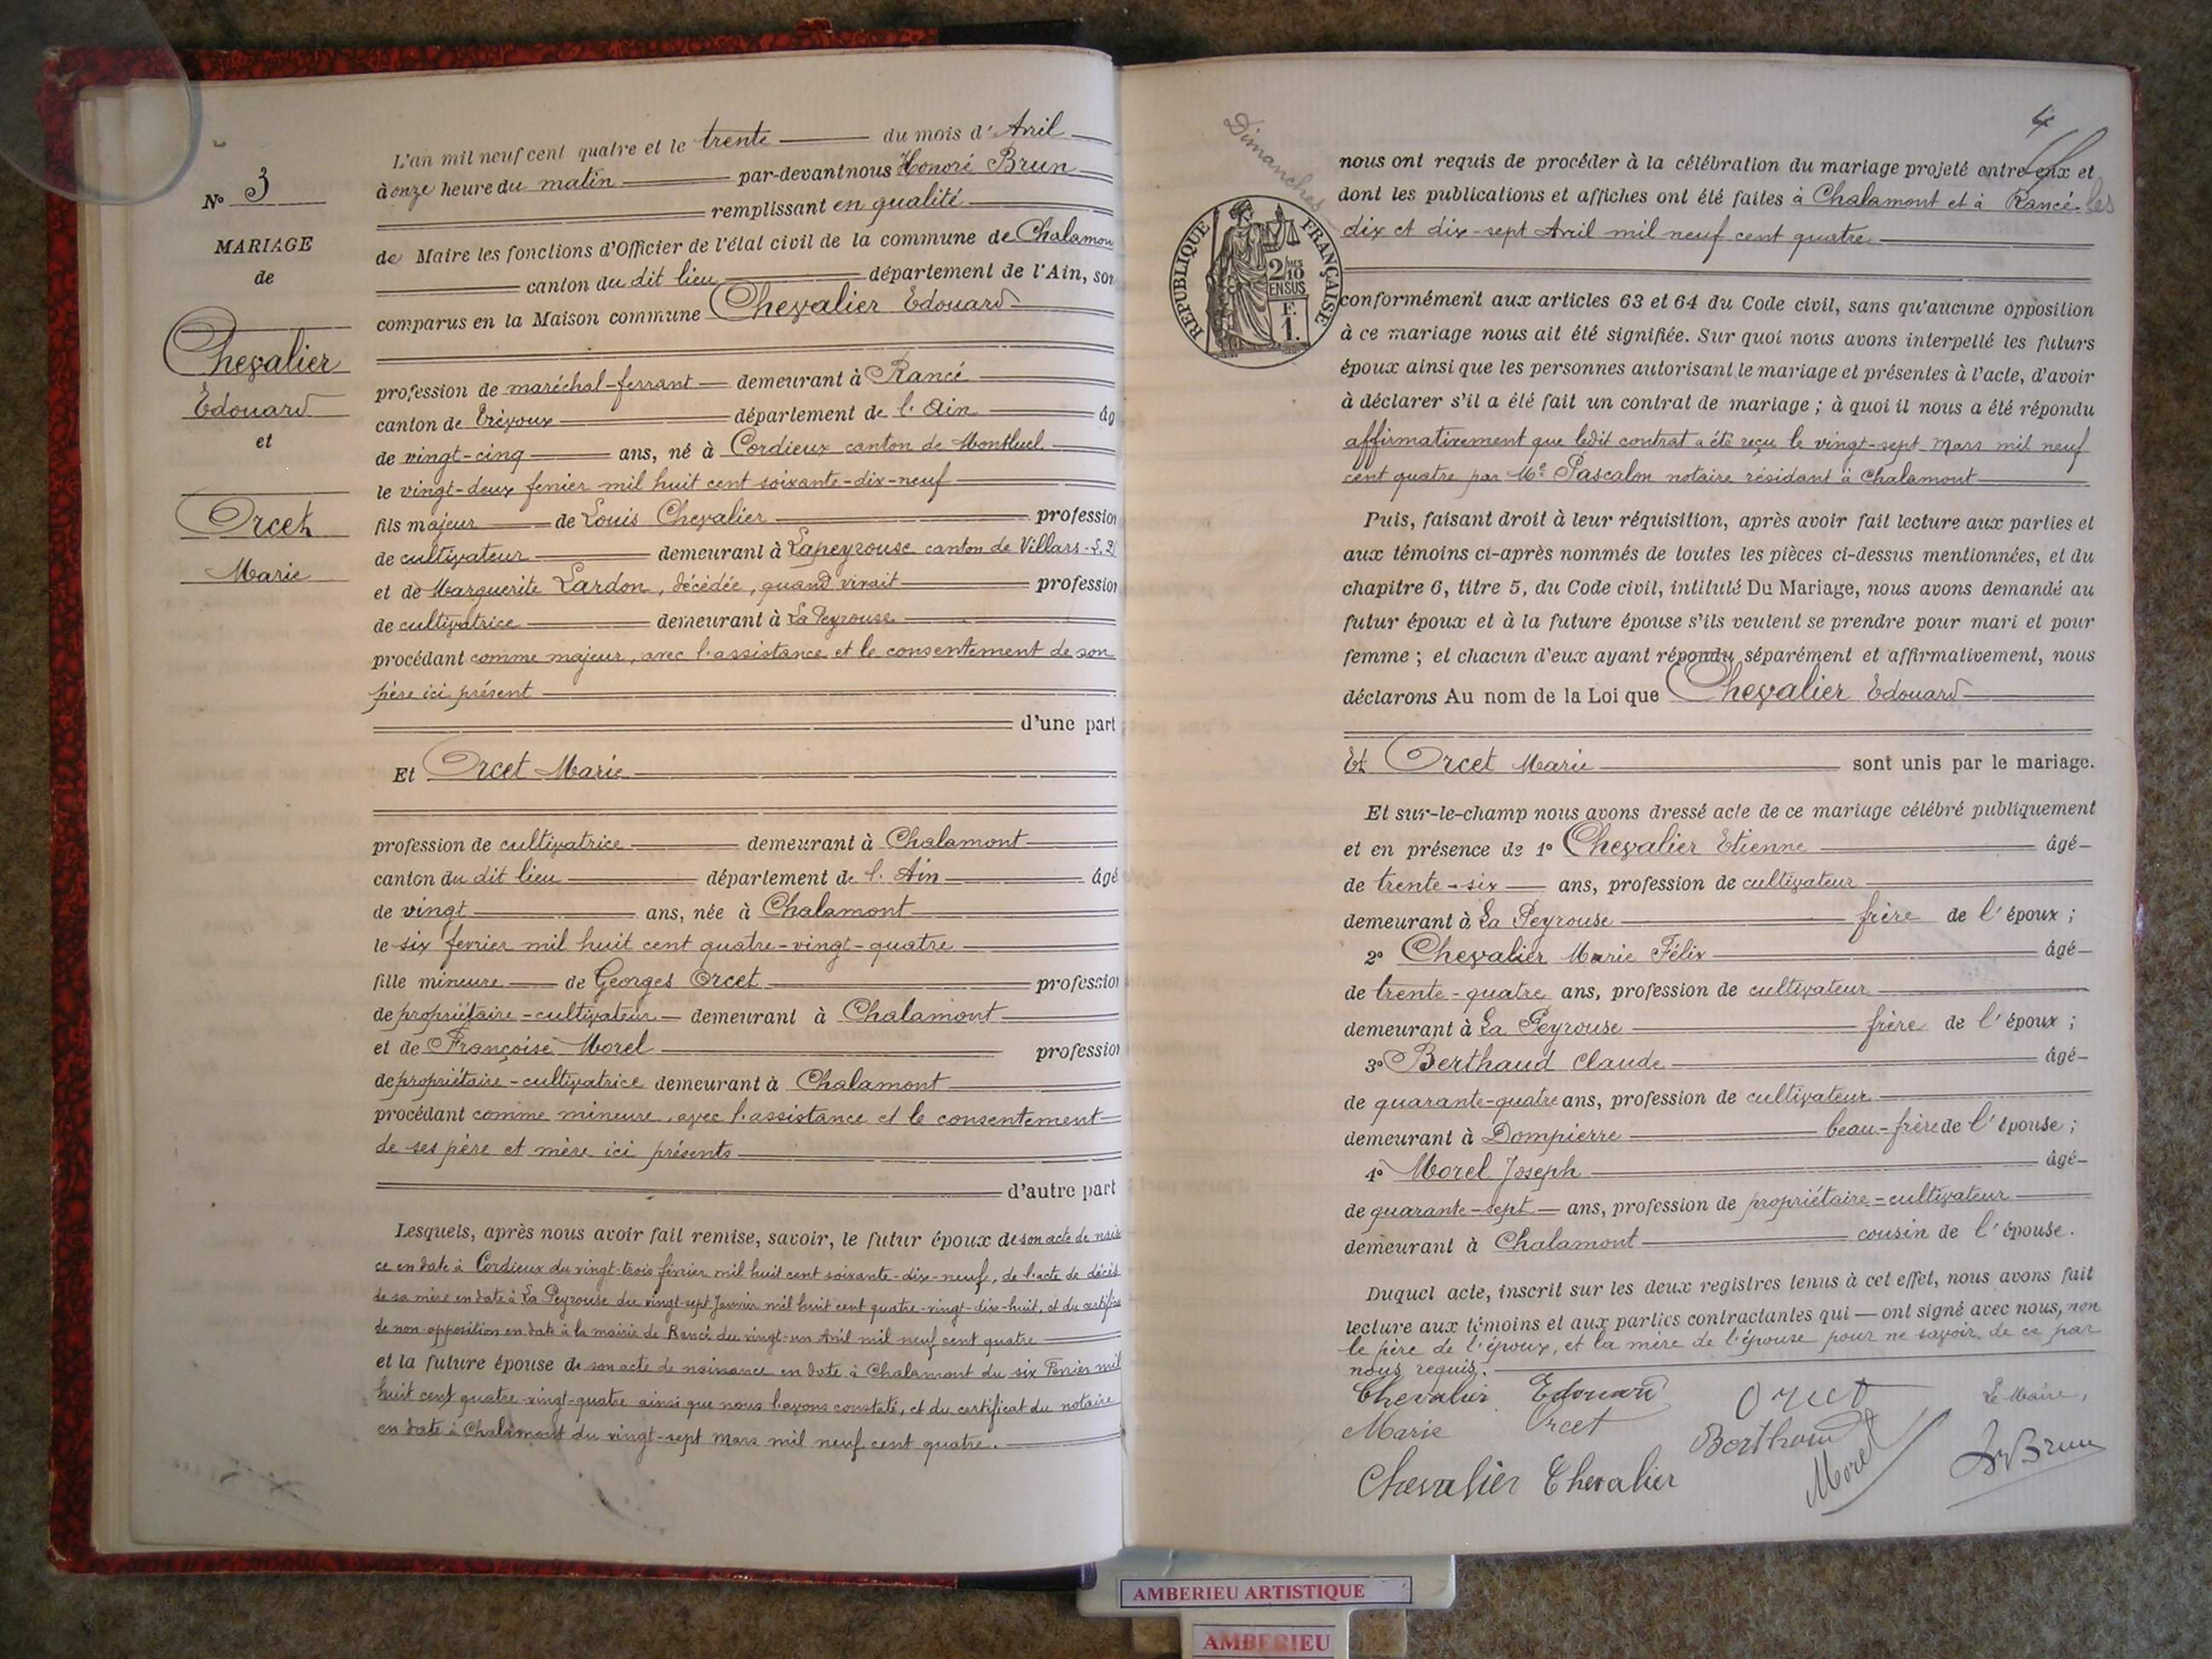 L'an mil neuf cent quatre et le trente du mois d'Avril
à onze heure du matin par-devant nous Honoré Brun
remplissant en qualité
de Maire les fonctions d'Officier de l'état civil de la commune de Chalamon
canton du dit lieu département de l'Ain, son
comparus en la Maison commune Chevalier Edouard
profession de maréchal-ferrant demeurant à Rancé
canton de Trévoux département de l'Ain âg
de vingt-cinq ans, né à Cordieux canton de Montluel
le vingt-deux fevrier mil huit cent soixante-dix-neuf
fils majeur de Louis Chevalier profession
de cultivateur demeurant à Lapeyrouse canton de Villars-S.D
et de Marguerite Lardon, décédée, quand vivait profession
de cultivatrice demeurant à La Peyrouse
procédant comme majeur, avec l'assistance et le consentement de son
père ici présent
d'une part
Et Orcet Marie
profession de cultivatrice demeurant à Chalamont
canton du dit lieu département de l'Ain âgé
de vingt ans, née à Chalamont
le six fevrier mil huit cent quatre-vingt-quatre
fille mineure de Georges Orcet profession
de propriétaire-cultivateur demeurant à Chalamont
et de Françoise Morel profession
de propriétaire-cultivatrice demeurant à Chalamont
procédant comme mineure, avec l'assistance et le consentement
de ses père et mère ici présents
d'autre part
Lesquels, après nous avoir fait remise, savoir, le futur époux de son acte de nais
ce en date à Cordieux du vingt-trois février mil huit cent soixante-dix-neuf, de l'acte de décès
de sa mère en date à La Peyrouse du vingt-sept Janvier mil huit cent quatre-vingt-dix-huit, et du certifica
de non opposition en date à la mairie de Rancé du vingt-un Avril mil neuf cent quatre
et la future épouse de son acte de naissance en date à Chalamont du six Fevrier mil
huit cent quatre-vingt-quatre ainsi que nous l'avons constaté, et du certificat du notaire
en date à Chalamont du vingt-sept mars mil neuf cent quatre.
N° 3
MARIAGE
de
Chevalier
Edouard
et
Orcet
Marie
4
Dimanches
nous ont requis de procéder à la célébration du mariage projeté entre eux et
dont les publications et affiches ont été faites à Chalamont et à Rancé les
dix et dix-sept Avril mil neuf cent quatre
RÉPUBLIQUE FRANÇAISE
2/10
EN SUS
F.
1.
conformément aux articles 63 et 64 du Code civil, sans qu'aucune opposition
à ce mariage nous ait été signifiée. Sur quoi nous avons interpellé les futurs
époux ainsi que les personnes autorisant le mariage et présentes à l'acte, d'avoir
à déclarer s'il a été fait un contrat de mariage ; à quoi il nous a été répondu
affirmativement que ledit contrat a été reçu le vingt-sept Mars mil neuf
cent quatre par Me Pascalon notaire résidant à Chalamont
Puis, faisant droit à leur réquisition, après avoir fait lecture aux parties et
aux témoins ci-après nommés de toutes les pièces ci-dessus mentionnées, et du
chapitre 6, titre 5, du Code civil, intitulé Du Mariage, nous avons demandé au
futur époux et à la future épouse s'ils veulent se prendre pour mari et pour
femme ; et chacun d'eux ayant répondu séparément et affirmativement, nous
déclarons Au nom de la Loi que Chevalier Edouard
Et Orcet Marie sont unis par le mariage.
Et sur-le-champ nous avons dressé acte de ce mariage célébré publiquement
et en présence de 1° Chevalier Etienne âgé
de trente-six ans, profession de cultivateur
demeurant à La Peyrouse frère de l'époux ;
2° Chevalier Marie Félix âgé
de trente-quatre ans, profession de cultivateur
demeurant à La Peyrouse frère de l'époux ;
3° Berthaud Claude âgé
de quarante-quatre ans, profession de cultivateur
demeurant à Dompierre beau-frère de l'épouse ;
4° Morel Joseph âgé
de quarante-sept ans, profession de propriétaire-cultivateur
demeurant à Chalamont cousin de l'épouse.
Duquel acte, inscrit sur les deux registres tenus à cet effet, nous avons fait
lecture aux témoins et aux parties contractantes qui ont signé avec nous, non
le père de l'époux, et la mère de l'épouse pour ne savoir de ce par
nous requis.
Chevalier Edouard Orcet Le Maire,
Marie Orcet Berthaud
Chevalier Chevalier Morel Brun
AMBERIEU ARTISTIQUE
AMBERIEU